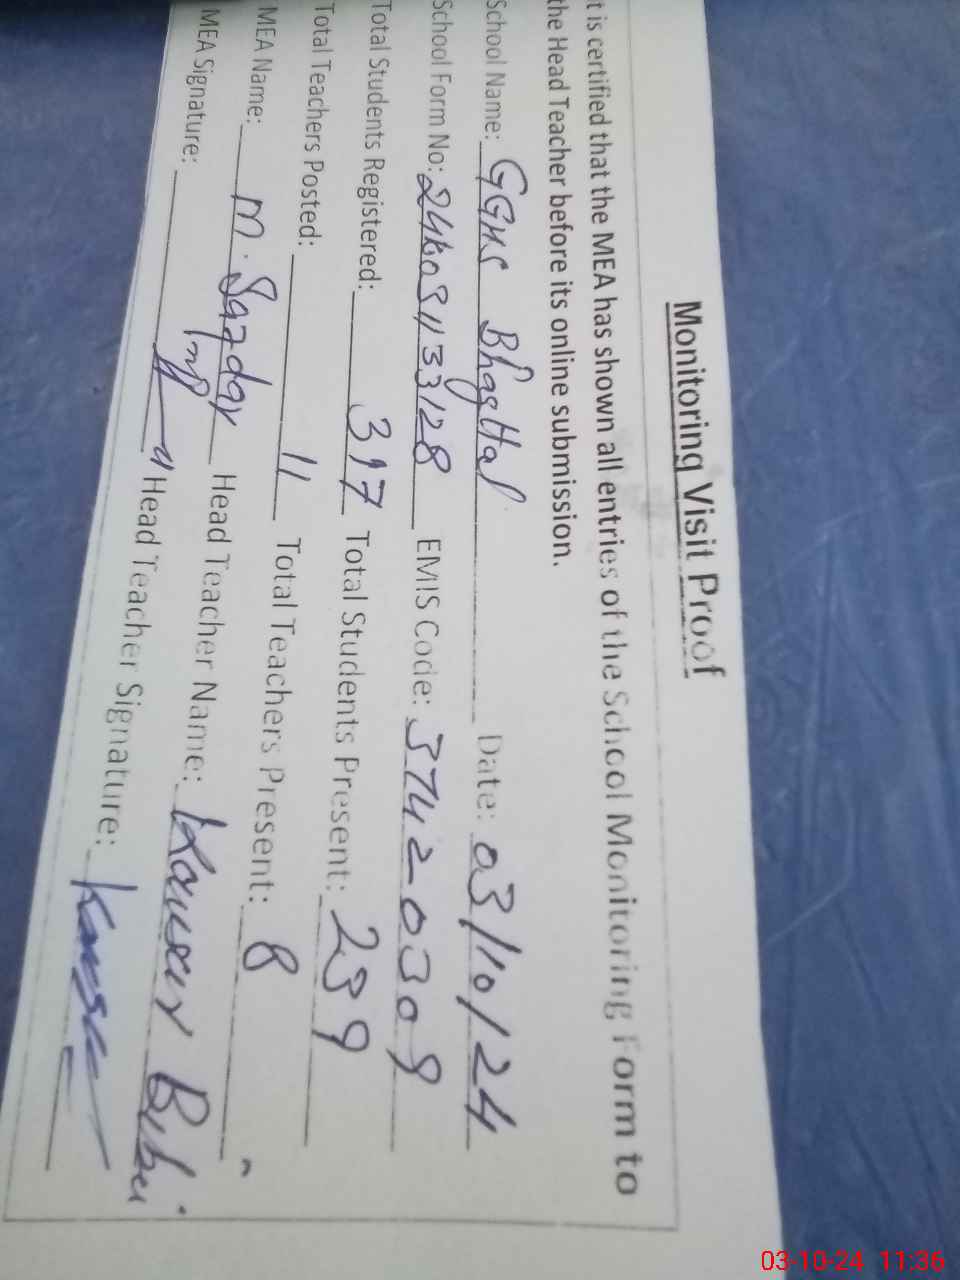 Monitoring Visit Proof
t is certified that the MEA has shown all entries of the School Monitoring Form to
the Head Teacher before its online submission.
School Name: GGHS Bhagtal Date: 03/10/24
School Form No: EMIS Code: 37420309
Total Students Registered: 397 Total Students Present: 239
Total Teachers Posted: 11 Total Teachers Present: 8
MEA Name: M. Safdar Head Teacher Name: Kausar Bibi
MEA Signature: Head Teacher Signature: Kausar
03-10-24 11:36